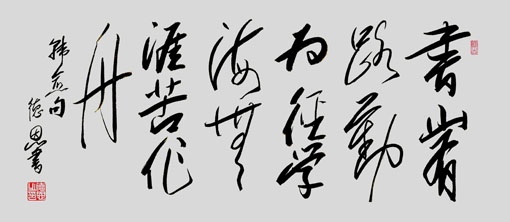 書山有
路勤
为径学
海無
涯苦作
舟
韩愈句
德恩書